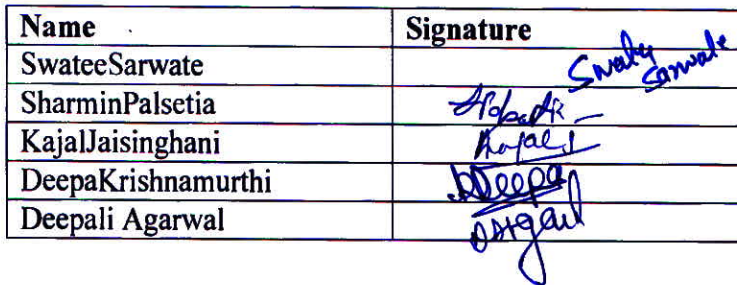 Name Signature
SwateeSarwate Swatee Sarwate
SharminPalsetia
KajalJaisinghani Kajal J
DeepaKrishnamurthi Deepa
Deepali Agarwal